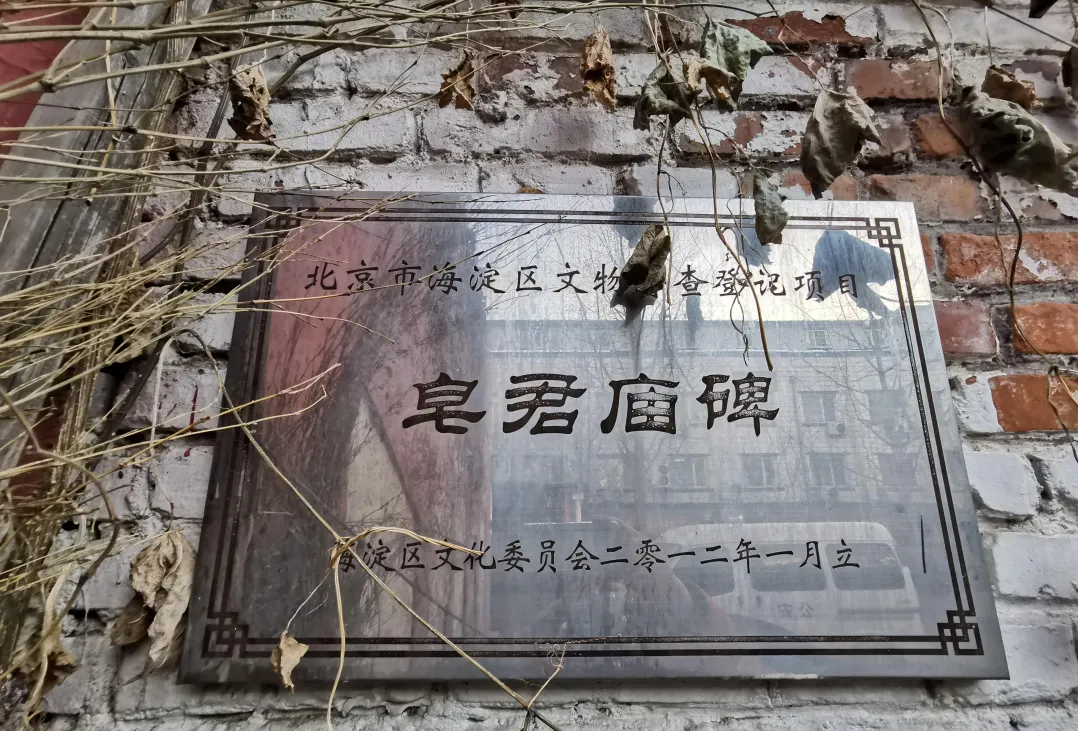 北京市海淀区文物查登记项目
皂君庙碑
海淀区文化委员会二零一二年一月立
公安